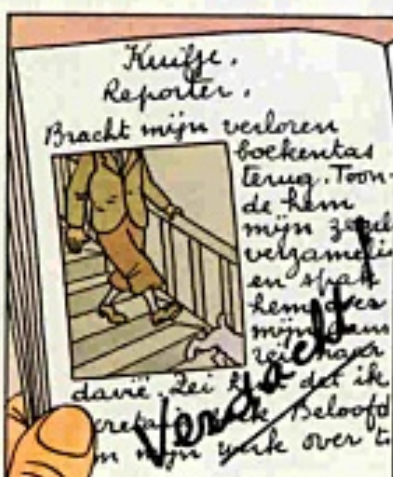 Kuifje.
Reporter.
Bracht mijn verloren
boekentas
terug. Toon-
de hem
mijn zegel
verzameli
en sprak
hem over
mijn
zei naar
davië. Zei hem dat ik
Beloofd
mijn werk over t
Verdacht!